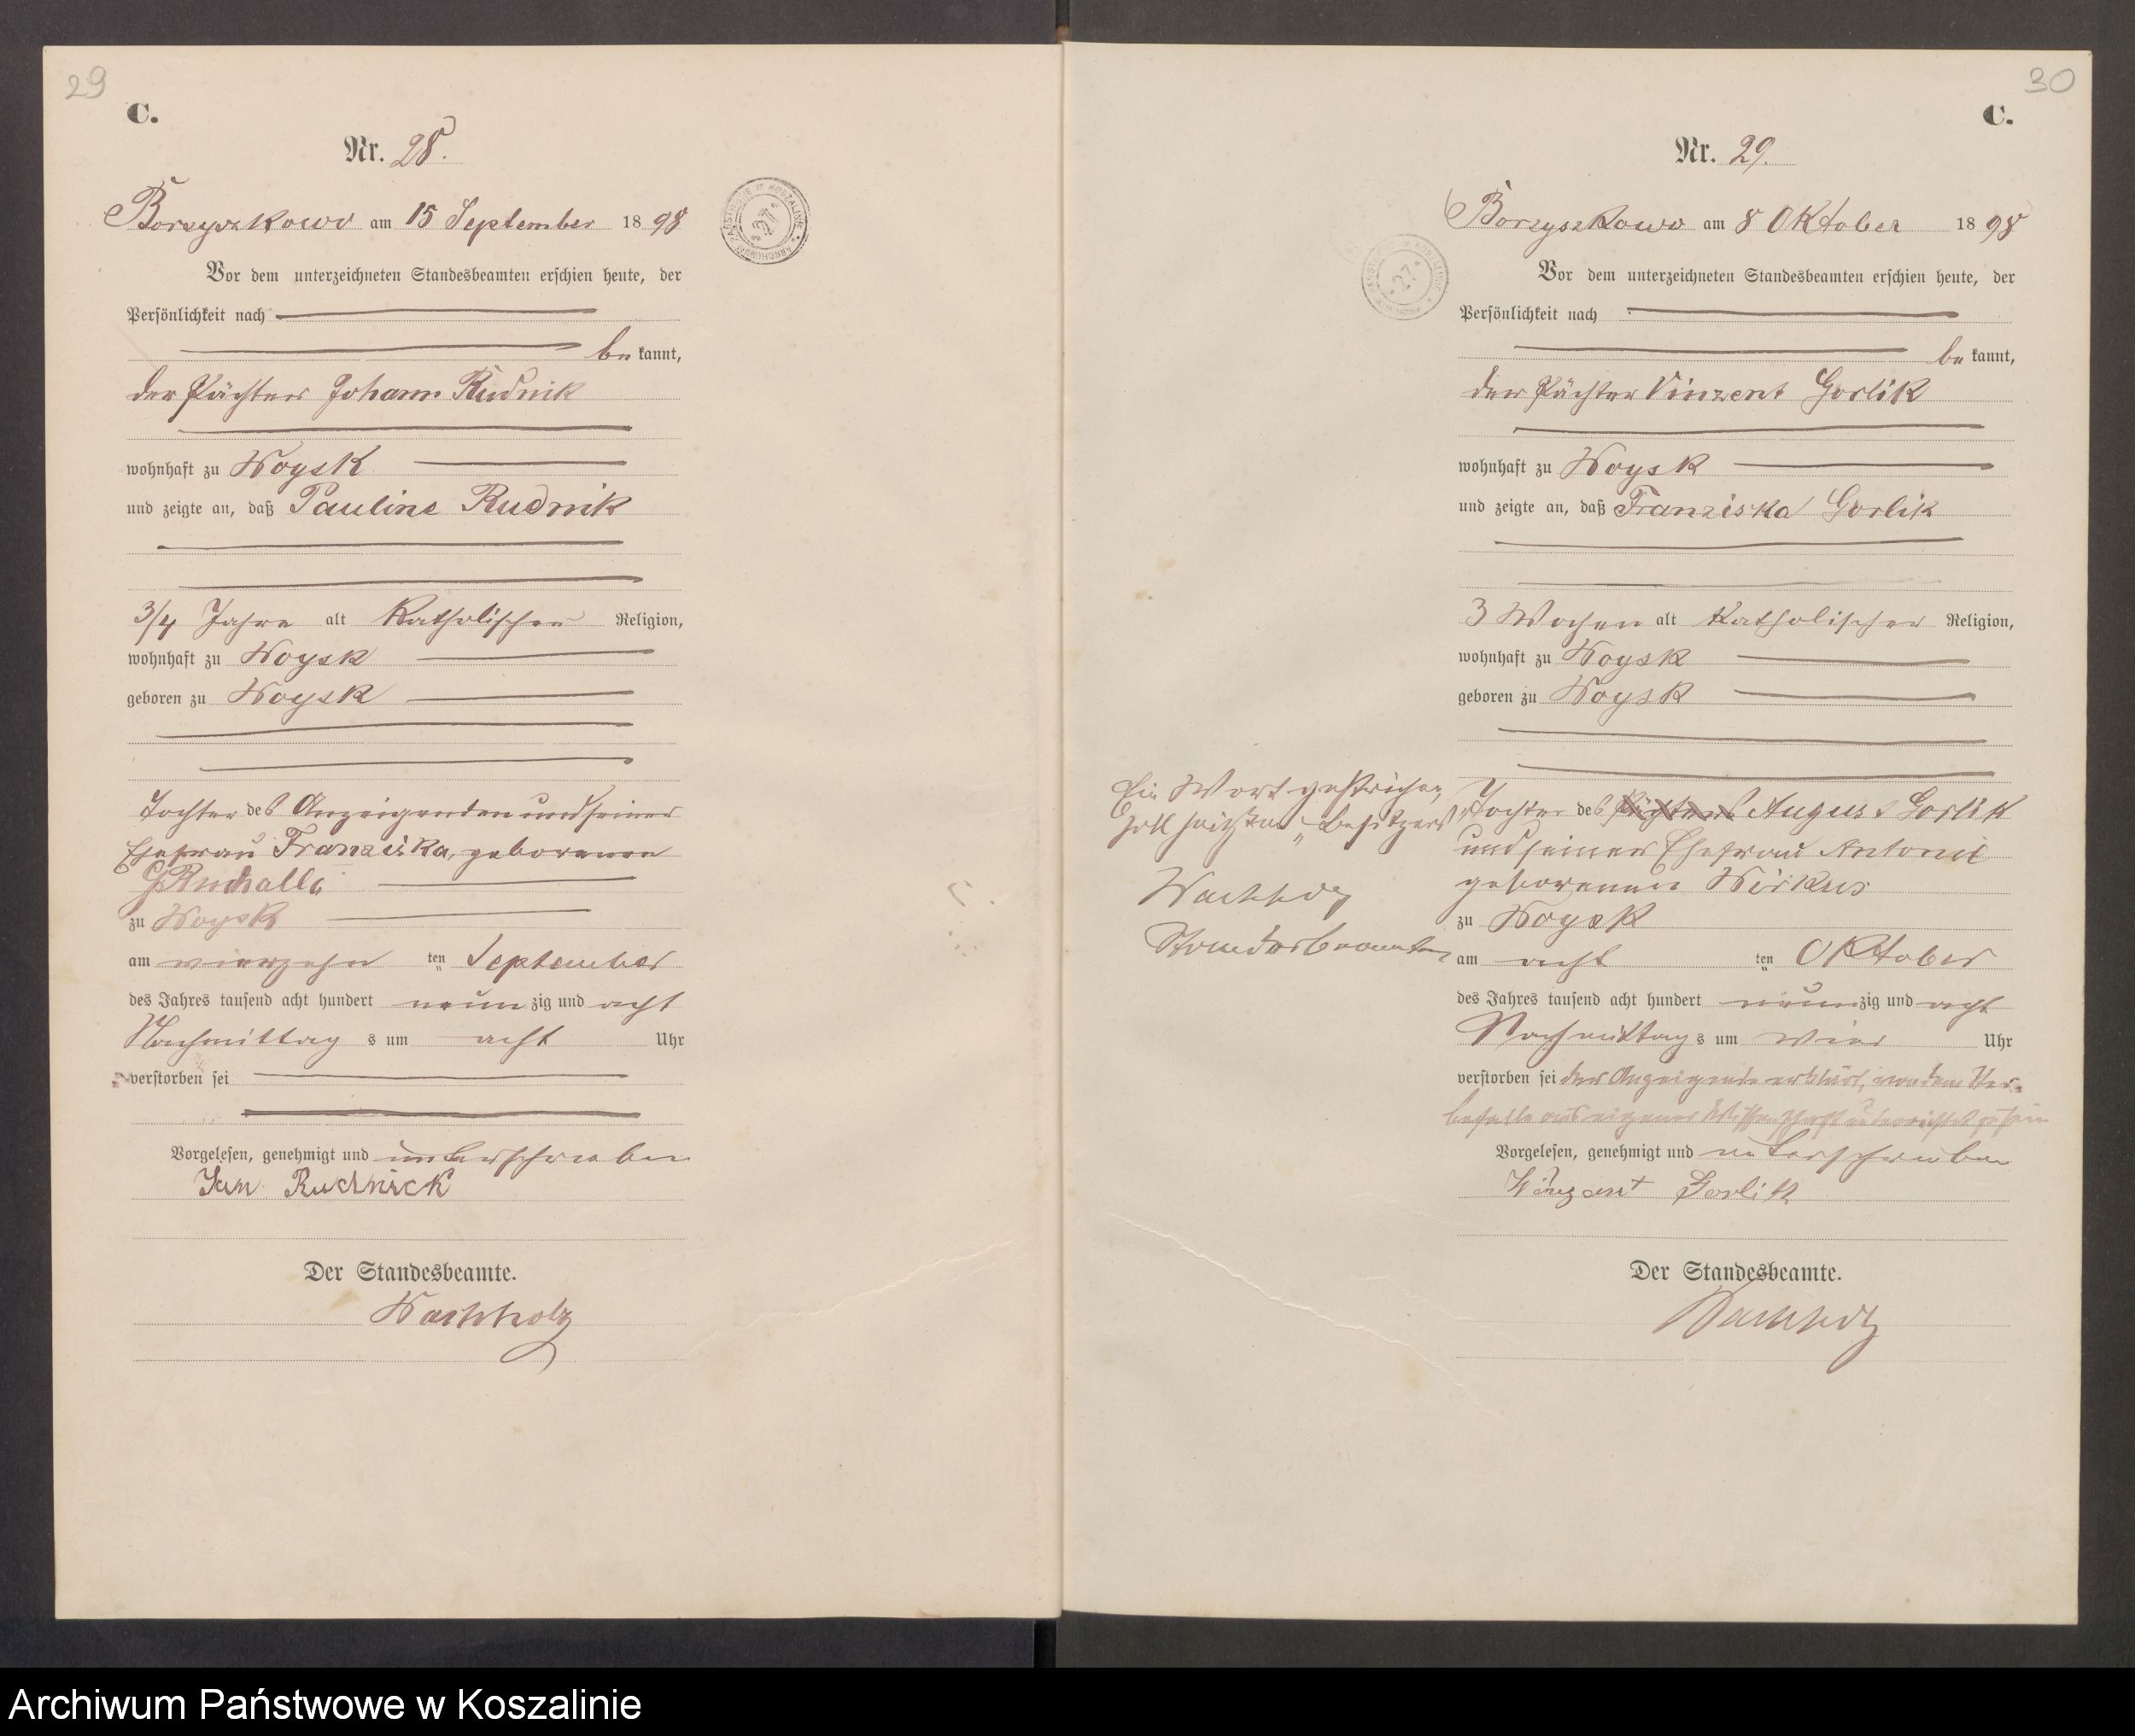 29
C.
Nr. 28.
Borzyszkowo am 15 September 1898
Vor dem unterzeichneten Standesbeamten erschien heute, der
Persönlichkeit nach
be kannt,
der Pächter Johann Rudnik
wohnhaft zu Woysk
und zeigte an, daß Pauline Rudnik
3/4 Jahre alt Katholischer Religion,
wohnhaft zu Woysk
geboren zu Woysk
Tochter des Anzeigenden und seiner
Ehefrau Franziska, geborenen
zu Woysk
am vierzehn ten September
des Jahres tausend acht hundert neun zig und acht
Nachmittag s um acht Uhr
verstorben sei
Vorgelesen, genehmigt und unterschrieben
Jan Rudnick
Der Standesbeamte.
Wachholz
30
C.
Nr. 29.
Borzyszkowo am 8 Oktober 1898
Vor dem unterzeichneten Standesbeamten erschien heute, der
Persönlichkeit nach
be kannt,
der Pächter Vinzent Gorlik
wohnhaft zu Woysk
und zeigte an, daß Franziska Gorlik
3 Wochen alt Katholischer Religion,
wohnhaft zu Woysk
geboren zu Woysk
Tochter des Pächters August Gorlik
und seiner Ehefrau Antonie
geborenen Wirkus
zu Woysk
am acht ten Oktober
des Jahres tausend acht hundert neun zig und acht
Nachmittag s um vier Uhr
verstorben sei der Anzeigende erklärt, von dem Ster-
befalle aus eigener Wissenschaft unterrichtet zu sein
Vorgelesen, genehmigt und unterschrieben
Vinzent Gorlik
Der Standesbeamte.
Wachholz
Ein Wort gestrichen,
soll heißen „Besitzers"
Wachholz
Standesbeamter
Archiwum Państwowe w Koszalinie